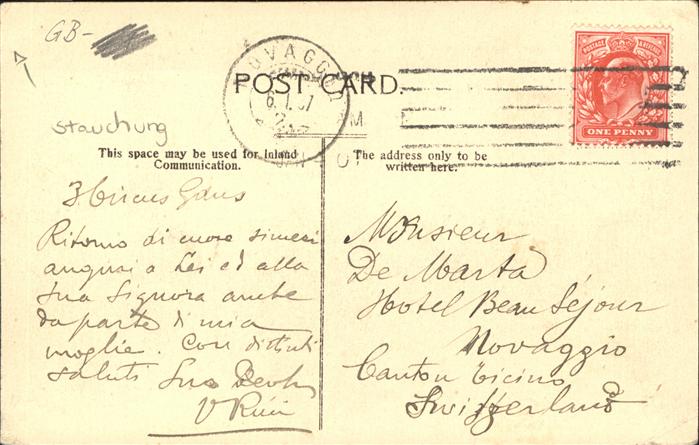 GB-
POST CARD.
NOVAGGIO
6.I.07
POSTAGE & REVENUE
ONE PENNY
Stauchung
This space may be used for Inland
Communication.
The address only to be
written here.
Ritorno di cuore sinceri
auguri a Lei ed alla
Sua Signora anche
da parte di mia
moglie. Con distinti
saluti Suo
Monsieur
De Marta
Hotel Beau Séjour
Novaggio
Canton Ticino
Switzerland